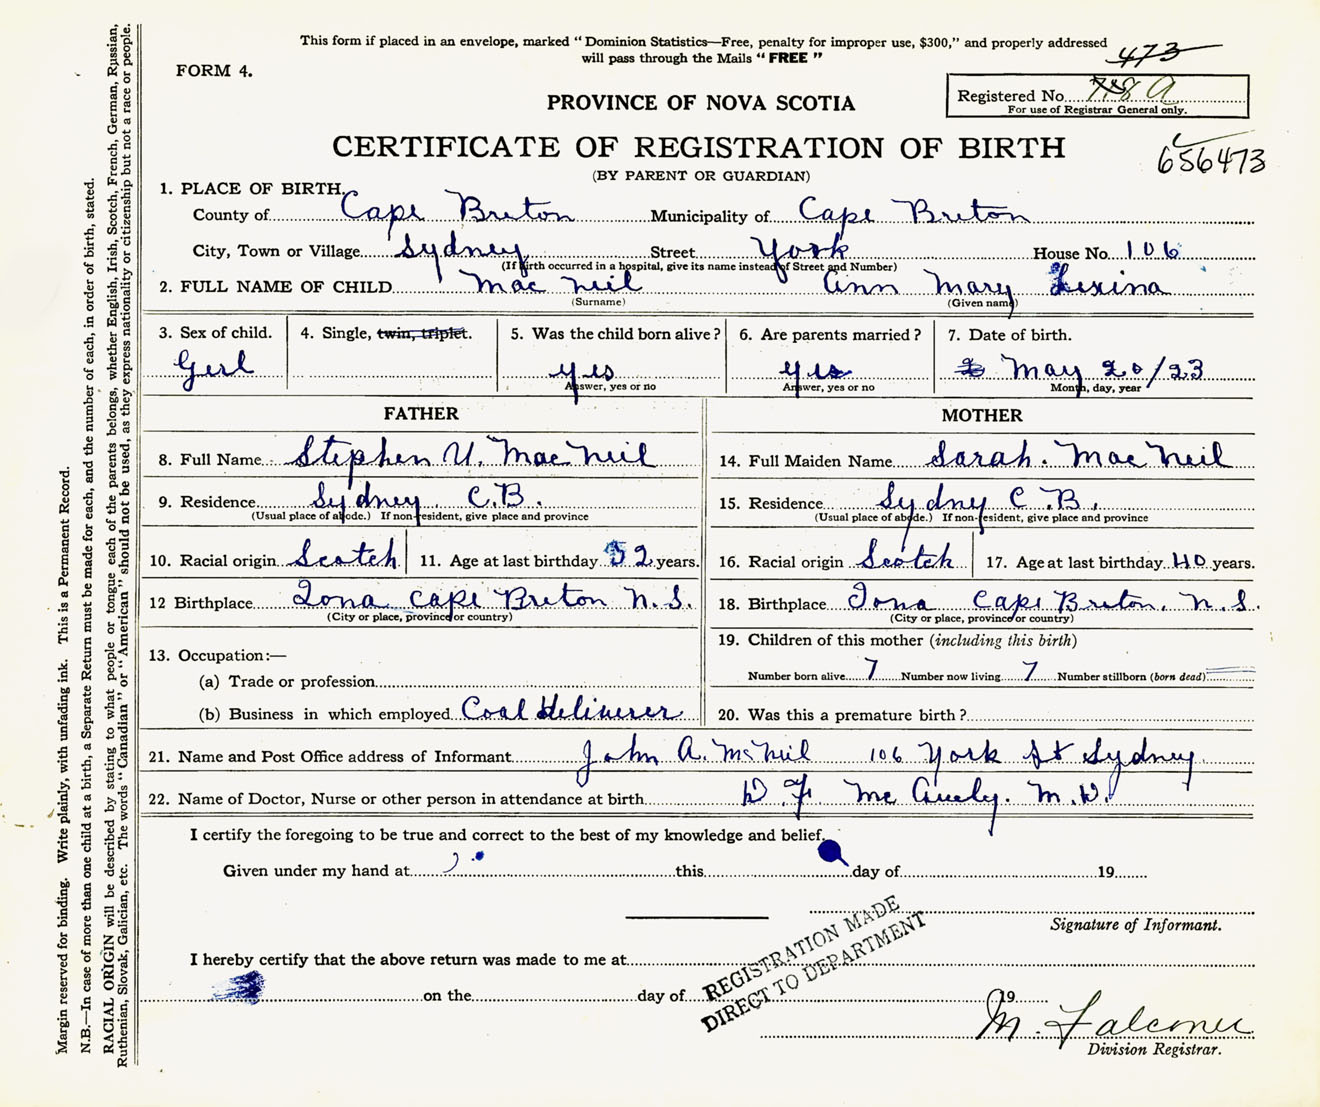 This form if placed in an envelope, marked "Dominion Statistics—Free, penalty for improper use, $300," and properly addressed
will pass through the Mails "FREE"
473
FORM 4.
Registered No. 718 a
For use of Registrar General only.
PROVINCE OF NOVA SCOTIA
CERTIFICATE OF REGISTRATION OF BIRTH
656473
(BY PARENT OR GUARDIAN)
1. PLACE OF BIRTH.
County of Cape Breton Municipality of Cape Breton
City, Town or Village Sydney Street York House No. 106
(If birth occurred in a hospital, give its name instead of Street and Number)
2. FULL NAME OF CHILD Mac Neil Ann Mary Lexina
(Surname) (Given name)
3. Sex of child. 4. Single, twin, triplet. 5. Was the child born alive? 6. Are parents married? 7. Date of birth.
Girl yes yes May 20/23
Answer, yes or no Answer, yes or no Month, day, year
FATHER MOTHER
8. Full Name Stephen U. MacNeil 14. Full Maiden Name Sarah. MacNeil
9. Residence Sydney C.B. 15. Residence Sydney C.B.
(Usual place of abode.) If non-resident, give place and province (Usual place of abode.) If non-resident, give place and province
10. Racial origin Scotch 11. Age at last birthday 52 years. 16. Racial origin Scotch 17. Age at last birthday 40 years.
12 Birthplace Iona Cape Breton N.S. 18. Birthplace Iona Cape Breton, N.S.
(City or place, province or country) (City or place, province or country)
19. Children of this mother (including this birth)
13. Occupation:—
Number born alive 7 Number now living 7 Number stillborn (born dead)
(a) Trade or profession
(b) Business in which employed Coal Deliverer 20. Was this a premature birth?
21. Name and Post Office address of Informant John A. McNeil 106 York St Sydney
22. Name of Doctor, Nurse or other person in attendance at birth D F Mc M.D.
I certify the foregoing to be true and correct to the best of my knowledge and belief.
Given under my hand at this day of 19
Signature of Informant.
REGISTRATION MADE
DIRECT TO DEPARTMENT
I hereby certify that the above return was made to me at
on the day of 19
M. Falconer
Division Registrar.
Margin reserved for binding. Write plainly, with unfading ink. This is a Permanent Record.
N.B.—In case of more than one child at a birth, a Separate Return must be made for each, and the number of each, in order of birth, stated.
RACIAL ORIGIN will be described by stating to what people or tongue each of the parents belongs, whether English, Irish, Scotch, French, German, Russian,
Ruthenian, Slovak, Galician, etc. The words "Canadian" or "American" should not be used, as they express nationality or citizenship but not a race or people.